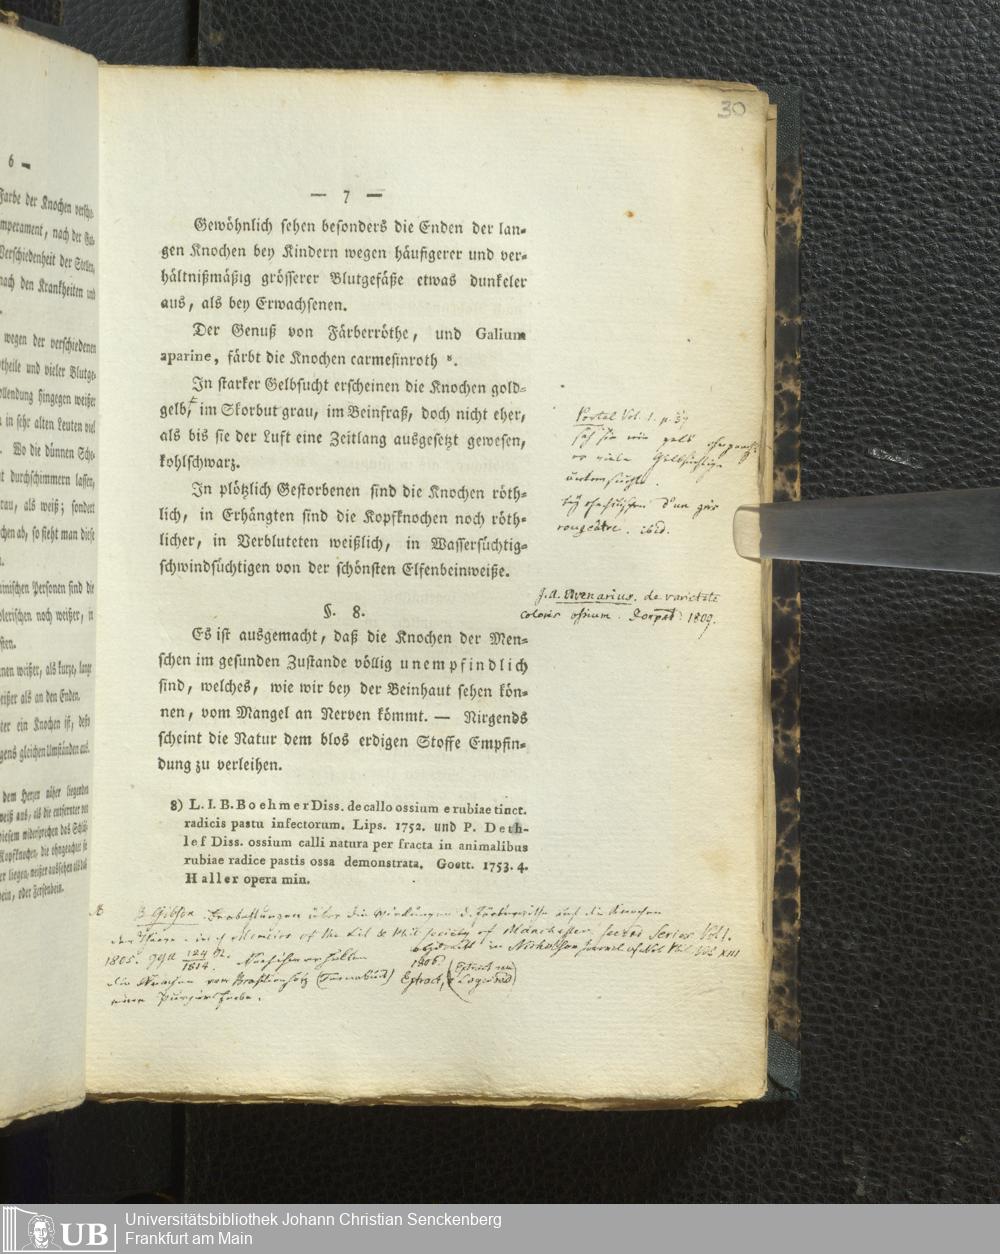 6 —
Farbe der Knochen verschie-
mperament, nach der
Verschiedenheit der Stellen,
nach den Krankheiten und
wegen der verschiedenen
theile und vieler Blutge-
ollendung hingegen weißer
in sehr alten Leuten viel
Wo die dünnen
t durchschimmern lassen,
rau, als weiß; sondert
chen ab, so sieht man diese
inischen Personen sind die
olerischen noch weißer, in
sten.
nen weißer, als kurze, lange
eißer als an den Enden.
ter ein Knochen ist, desto
gens gleichen Umständen aus.
dem Herzen näher liegenden
weiß aus, als die entfernter von
diesem widersprechen das Schlüs-
Kopfknochen, die ohngeachtet sie
er liegen, weißer aussehen als das
bein, oder Fersenbein.
30
— 7 —
Gewöhnlich sehen besonders die Enden der lan-
gen Knochen bey Kindern wegen häufigerer und ver-
hältnißmäßig grösserer Blutgefäße etwas dunkeler
aus, als bey Erwachsenen.
Der Genuß von Färberröthe, und Galium
aparine, färbt die Knochen carmesinroth ⁸.
In starker Gelbsucht erscheinen die Knochen gold-
gelb, im Skorbut grau, im Beinfraß, doch nicht eher,
als bis sie der Luft eine Zeitlang ausgesetzt gewesen,
kohlschwarz.
In plötzlich Gestorbenen sind die Knochen röth-
lich, in Erhängten sind die Kopfknochen noch röth-
licher, in Verbluteten weißlich, in Wassersüchtig-
schwindsüchtigen von der schönsten Elfenbeinweiße.
§. 8.
Es ist ausgemacht, daß die Knochen der Men-
schen im gesunden Zustande völlig unempfindlich
sind, welches, wie wir bey der Beinhaut sehen kön-
nen, vom Mangel an Nerven kömmt. — Nirgends
scheint die Natur dem blos erdigen Stoffe Empfin-
dung zu verleihen.
8) L. I. B. Boehmer Diss. de callo ossium e rubiae tinct.
radicis pastu infectorum. Lips. 1752. und P. Deth-
lef Diss. ossium calli natura per fracta in animalibus
rubiae radice pastis ossa demonstrata. Goett. 1753. 4.
Haller opera min.
Portal Vol. 1. p. 37
sah sie nie gelb ohngeacht
er viele Gelbsüchtige
untersuchte.
bey d'un gris
rougeâtre. ibid.
J. A. Avenarius. de varietate
coloris ossium. Dorpat 1809.
B Gibson Beobachtungen über die Wirkungen d. Färberröthe auf die Knochen
der Thiere in Memoirs of the Lit & Phil Society of Manchester second Series Vol 1.
1805. gga 124 St. 1814. abgedruckt in Nicholson Journal of Nat Phil Vol XIII
1806.
die Knochen von (Fernabuck) Extract, (Extract von Logwood)
eine Purpurfarbe.
UB
Universitätsbibliothek Johann Christian Senckenberg
Frankfurt am Main